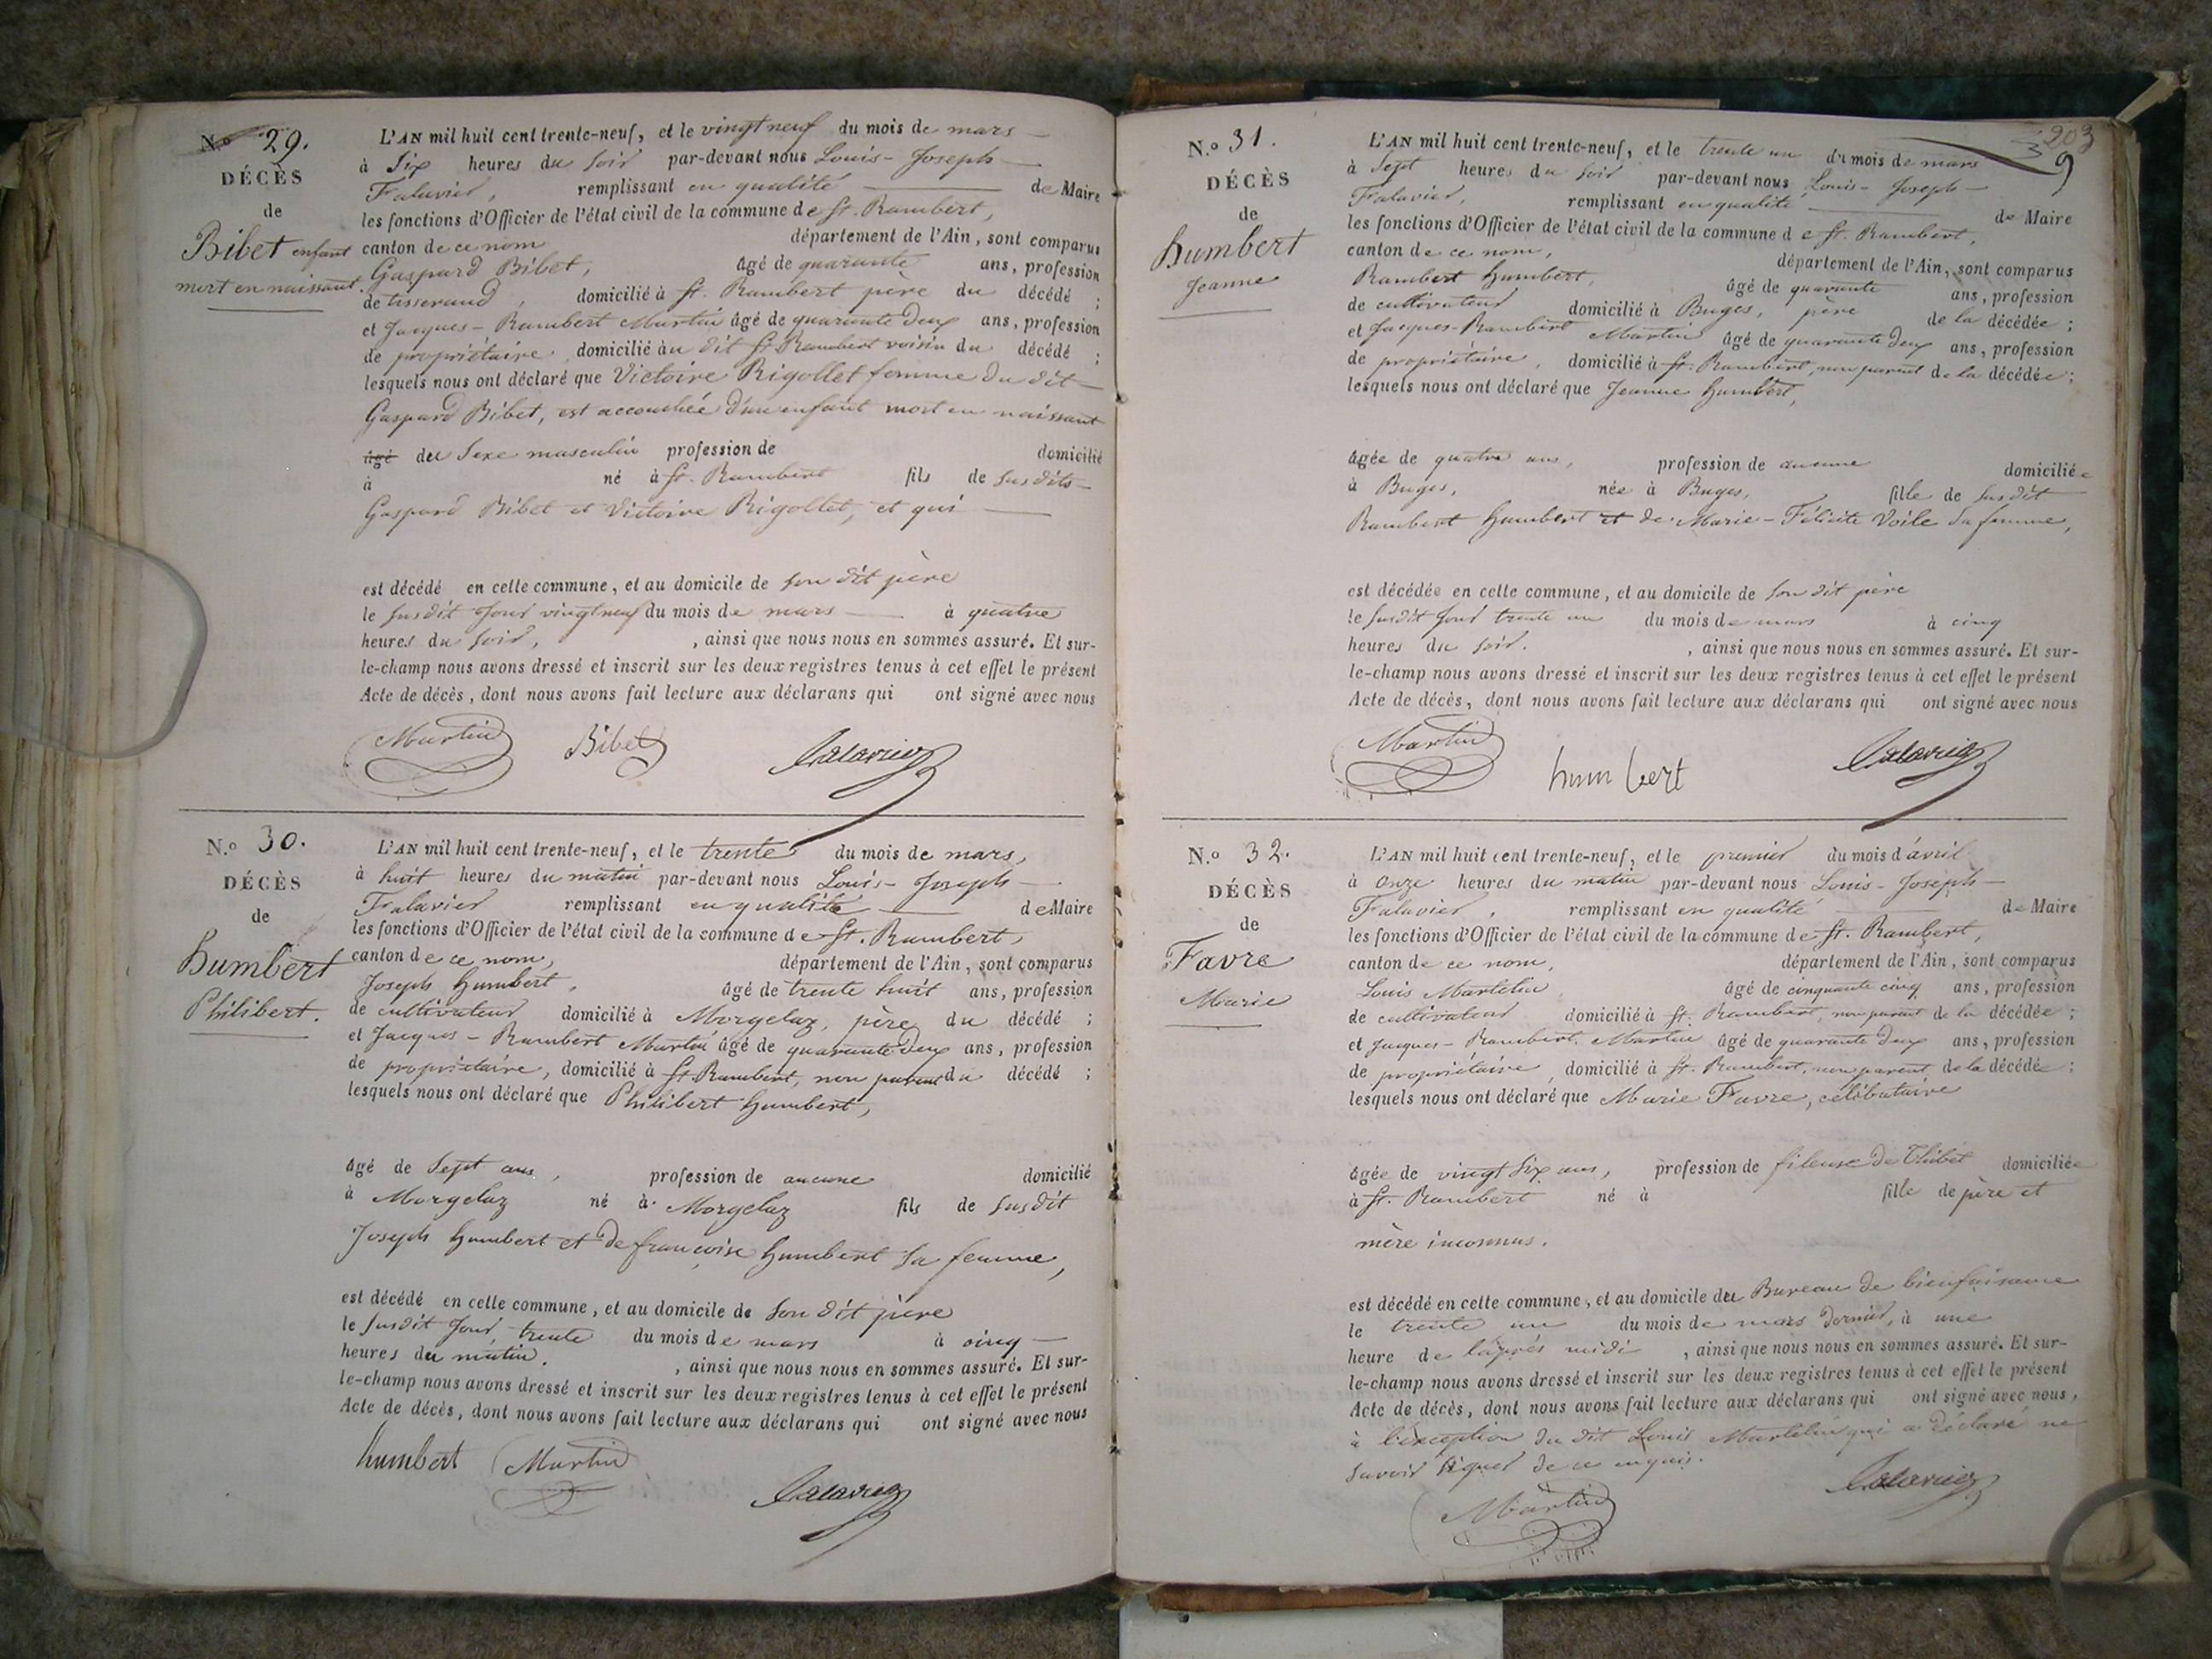 N.º 29.
DÉCÈS
de
Bibet enfant
mort en naissant.
L'AN mil huit cent trente-neuf, et le vingt neuf du mois de mars
à Six heures du Soir par-devant nous Louis-Joseph
Falavier, remplissant en qualité de Maire
les fonctions d'Officier de l'état civil de la commune de St. Rambert,
canton de ce nom département de l'Ain, sont comparus
Gaspard Bibet, âgé de quarante ans, profession
de tisserand, domicilié à St. Rambert père du décédé ;
et Jacques-Rambert Martin âgé de quarante deux ans, profession
de propriétaire domicilié au dit St Rambert voisin du décédé ;
lesquels nous ont déclaré que Victoire Rigollet femme du dit
Gaspard Bibet, est accouchée d'un enfant mort en naissant
âgé du Sexe masculin profession de domicilié
à né à St. Rambert fils de susdits
Gaspard Bibet et Victoire Rigollet, et qui
est décédé en cette commune, et au domicile de son dit père
le susdit Jour vingt neuf du mois de mars à quatre
heures du soir, , ainsi que nous nous en sommes assuré. Et sur-
le-champ nous avons dressé et inscrit sur les deux registres tenus à cet effet le présent
Acte de décès, dont nous avons fait lecture aux déclarans qui ont signé avec nous
Martin Bibet Falavier
N.º 30.
DÉCÈS
de
Humbert
Philibert.
L'AN mil huit cent trente-neuf, et le trente du mois de mars,
à huit heures du matin par-devant nous Louis-Joseph
Falavier remplissant en qualité de Maire
les fonctions d'Officier de l'état civil de la commune de St. Rambert,
canton de ce nom, département de l'Ain, sont comparus
Joseph Humbert, âgé de trente huit ans, profession
de cultivateur domicilié à Morgelaz, père du décédé ;
et Jacques-Rambert Martin âgé de quarante deux ans, profession
de propriétaire, domicilié à St Rambert, non parent du décédé ;
lesquels nous ont déclaré que Philibert Humbert,
âgé de Sept ans, profession de aucune domicilié
à Morgelaz né à Morgelaz fils de susdit
Joseph Humbert et de françoise Humbert sa femme,
est décédé en cette commune, et au domicile de son dit père
le susdit Jour, trente du mois de mars à cinq
heures du matin. , ainsi que nous nous en sommes assuré. Et sur-
le-champ nous avons dressé et inscrit sur les deux registres tenus à cet effet le présent
Acte de décès, dont nous avons fait lecture aux déclarans qui ont signé avec nous
humbert Martin Falavier
203
9
N.º 31.
DÉCÈS
de
Humbert
Jeanne
L'AN mil huit cent trente-neuf, et le trente un du mois de mars
à Sept heures du soir par-devant nous Louis-Joseph
Falavier, remplissant en qualité de Maire
les fonctions d'Officier de l'état civil de la commune de St. Rambert,
canton de ce nom, département de l'Ain, sont comparus
Rambert Humbert, âgé de quarante ans, profession
de cultivateur domicilié à Buges, père de la décédée ;
et Jacques-Rambert Martin âgé de quarante deux ans, profession
de propriétaire, domicilié à St. Rambert, non parent de la décédée ;
lesquels nous ont déclaré que Jeanne Humbert,
âgée de quatre ans, profession de aucune domiciliée
à Buges, née à Buges, fille de susdit
Rambert Humbert et de Marie-Félicité Voile sa femme,
est décédée en cette commune, et au domicile de son dit père
le susdit Jour trente un du mois de mars à cinq
heures du soir. , ainsi que nous nous en sommes assuré. Et sur-
le-champ nous avons dressé et inscrit sur les deux registres tenus à cet effet le présent
Acte de décès, dont nous avons fait lecture aux déclarans qui ont signé avec nous
Martin humbert Falavier
N.º 32.
DÉCÈS
de
Favre
Marie
L'AN mil huit cent trente-neuf, et le premier du mois d'avril
à Onze heures du matin par-devant nous Louis-Joseph
Falavier, remplissant en qualité de Maire
les fonctions d'Officier de l'état civil de la commune de St. Rambert,
canton de ce nom, département de l'Ain, sont comparus
Louis Martelin âgé de cinquante cinq ans, profession
de cultivateur domicilié à St. Rambert, non parent de la décédée ;
et Jacques-Rambert Martin âgé de quarante deux ans, profession
de propriétaire, domicilié à St. Rambert, non parent de la décédée ;
lesquels nous ont déclaré que Marie Favre, célibataire
âgée de vingt six ans, profession de fileuse de Thibet domiciliée
à St. Rambert né à fille de père et
mère inconnus.
est décédé en cette commune, et au domicile du Bureau de bienfaisance
le trente un du mois de mars dernier, à une
heure de l'après midi , ainsi que nous nous en sommes assuré. Et sur-
le-champ nous avons dressé et inscrit sur les deux registres tenus à cet effet le présent
Acte de décès, dont nous avons fait lecture aux déclarans qui ont signé avec nous,
à l'exception du dit Louis Martelin qui a déclaré ne
savoir signer de ce enquis.
Martin Falavier